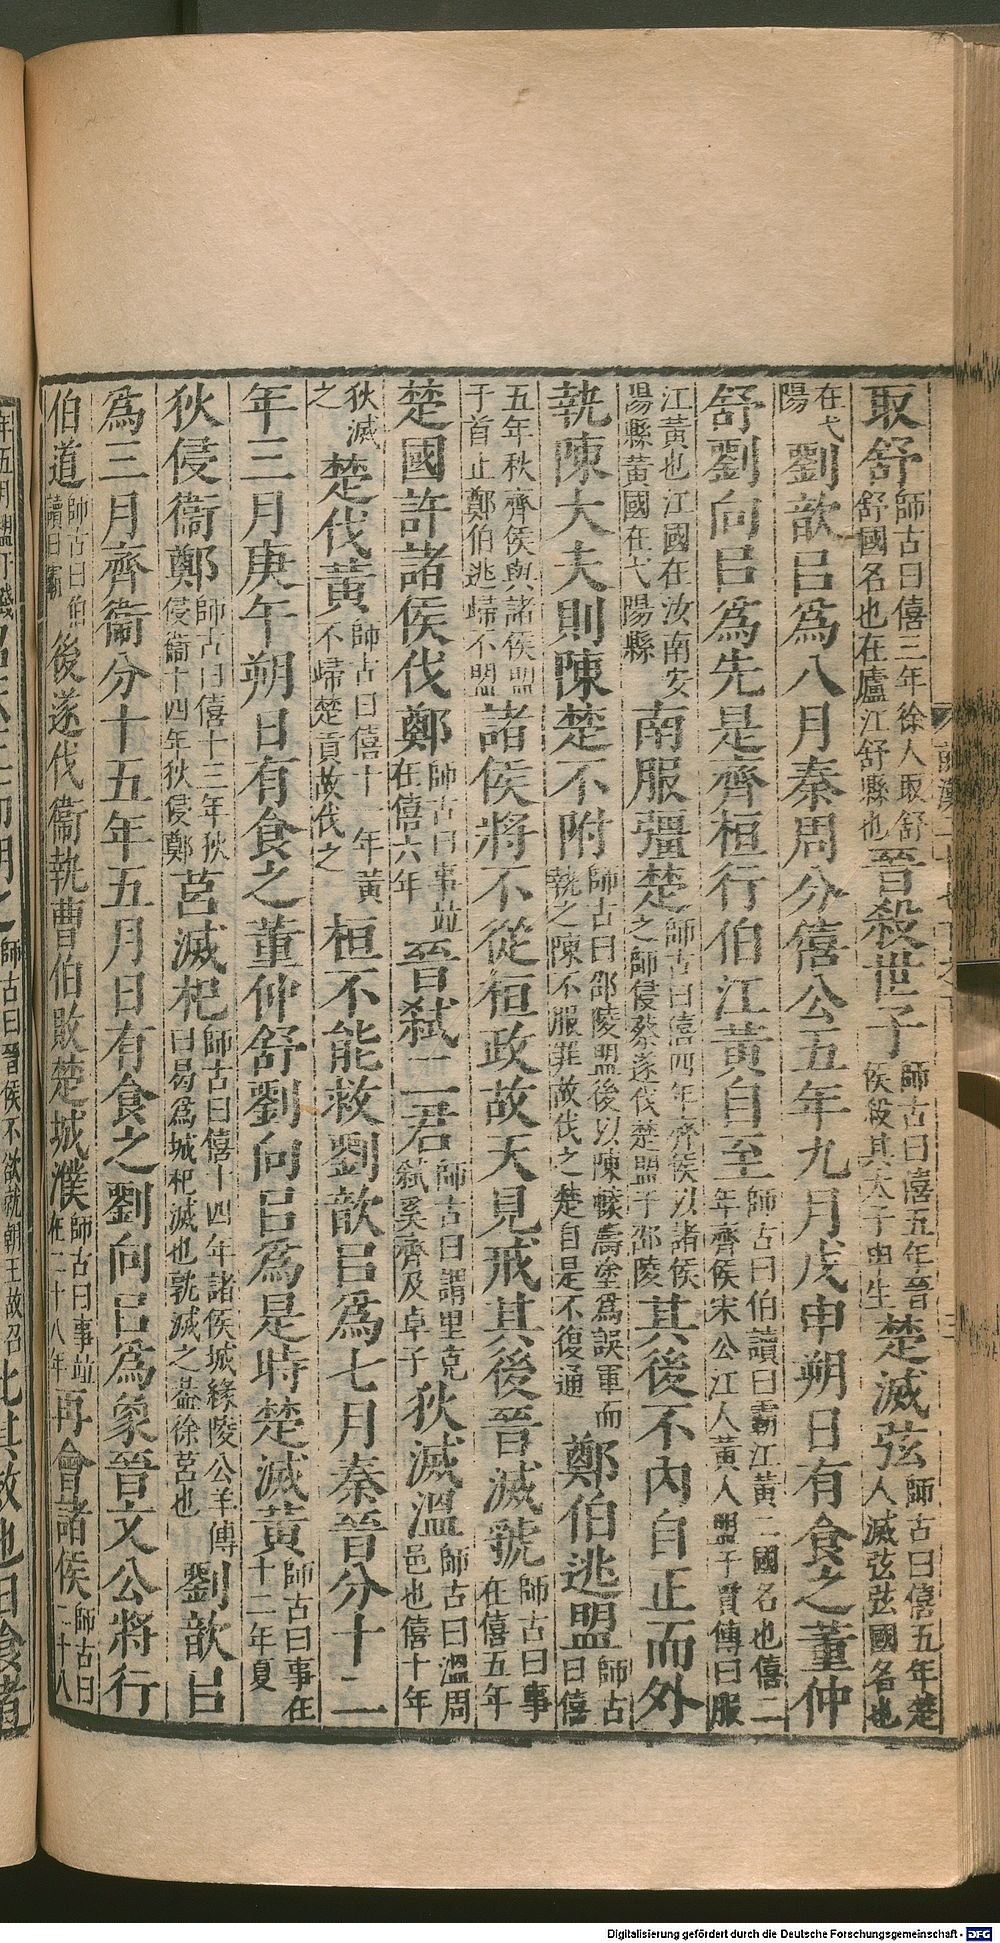 取舒師古曰僖三年徐人取舒舒國名也在廬江舒縣也晉殺世子師古曰僖五年晉侯殺其太子申生楚滅弦師古曰僖五年楚人滅弦弦國名也
在弋陽劉歆㠯爲八月秦周分僖公五年九月戊申朔日有食之董仲
舒劉向㠯爲先是齊桓行伯江黃自至師古曰伯讀曰霸江黃二國名也僖二年齊侯宋公江人黃人盟于貫傳曰服
江黃也江國在汝南安陽縣黃國在弋陽縣南服彊楚師古曰僖四年齊侯以諸侯之師侵蔡遂伐楚盟于邵陵其後不內自正而外
執陳大夫則陳楚不附師古曰邵陵盟後以陳轅濤塗爲誤軍而執之陳不服罪故伐之楚自是不復通鄭伯逃盟師古曰僖
五年秋齊侯與諸侯盟于首止鄭伯逃歸不盟諸侯將不從桓政故天見戒其後晉滅虢師古曰事在僖五年
楚國許諸侯伐鄭師古曰事並在僖六年晉弒二君師古曰謂里克弒奚齊及卓子狄滅溫師古曰溫周邑也僖十年
狄滅之楚伐黃師古曰僖十一年黃不歸楚貢故伐之桓不能救劉歆㠯爲七月秦晉分十二
年三月庚午朔日有食之董仲舒劉向㠯爲是時楚滅黃師古曰事在十二年夏
狄侵衞鄭師古曰僖十三年狄侵衞十四年狄侵鄭莒滅杞師古曰僖十四年諸侯城緣陵公羊傳曰曷爲城杞滅也孰滅之蓋徐莒也劉歆㠯
爲三月齊衞分十五年五月日有食之劉向㠯爲象晉文公將行
伯道師古曰伯讀曰霸後遂伐衞執曹伯敗楚城濮師古曰事並在二十八年再會諸侯師古曰二十八